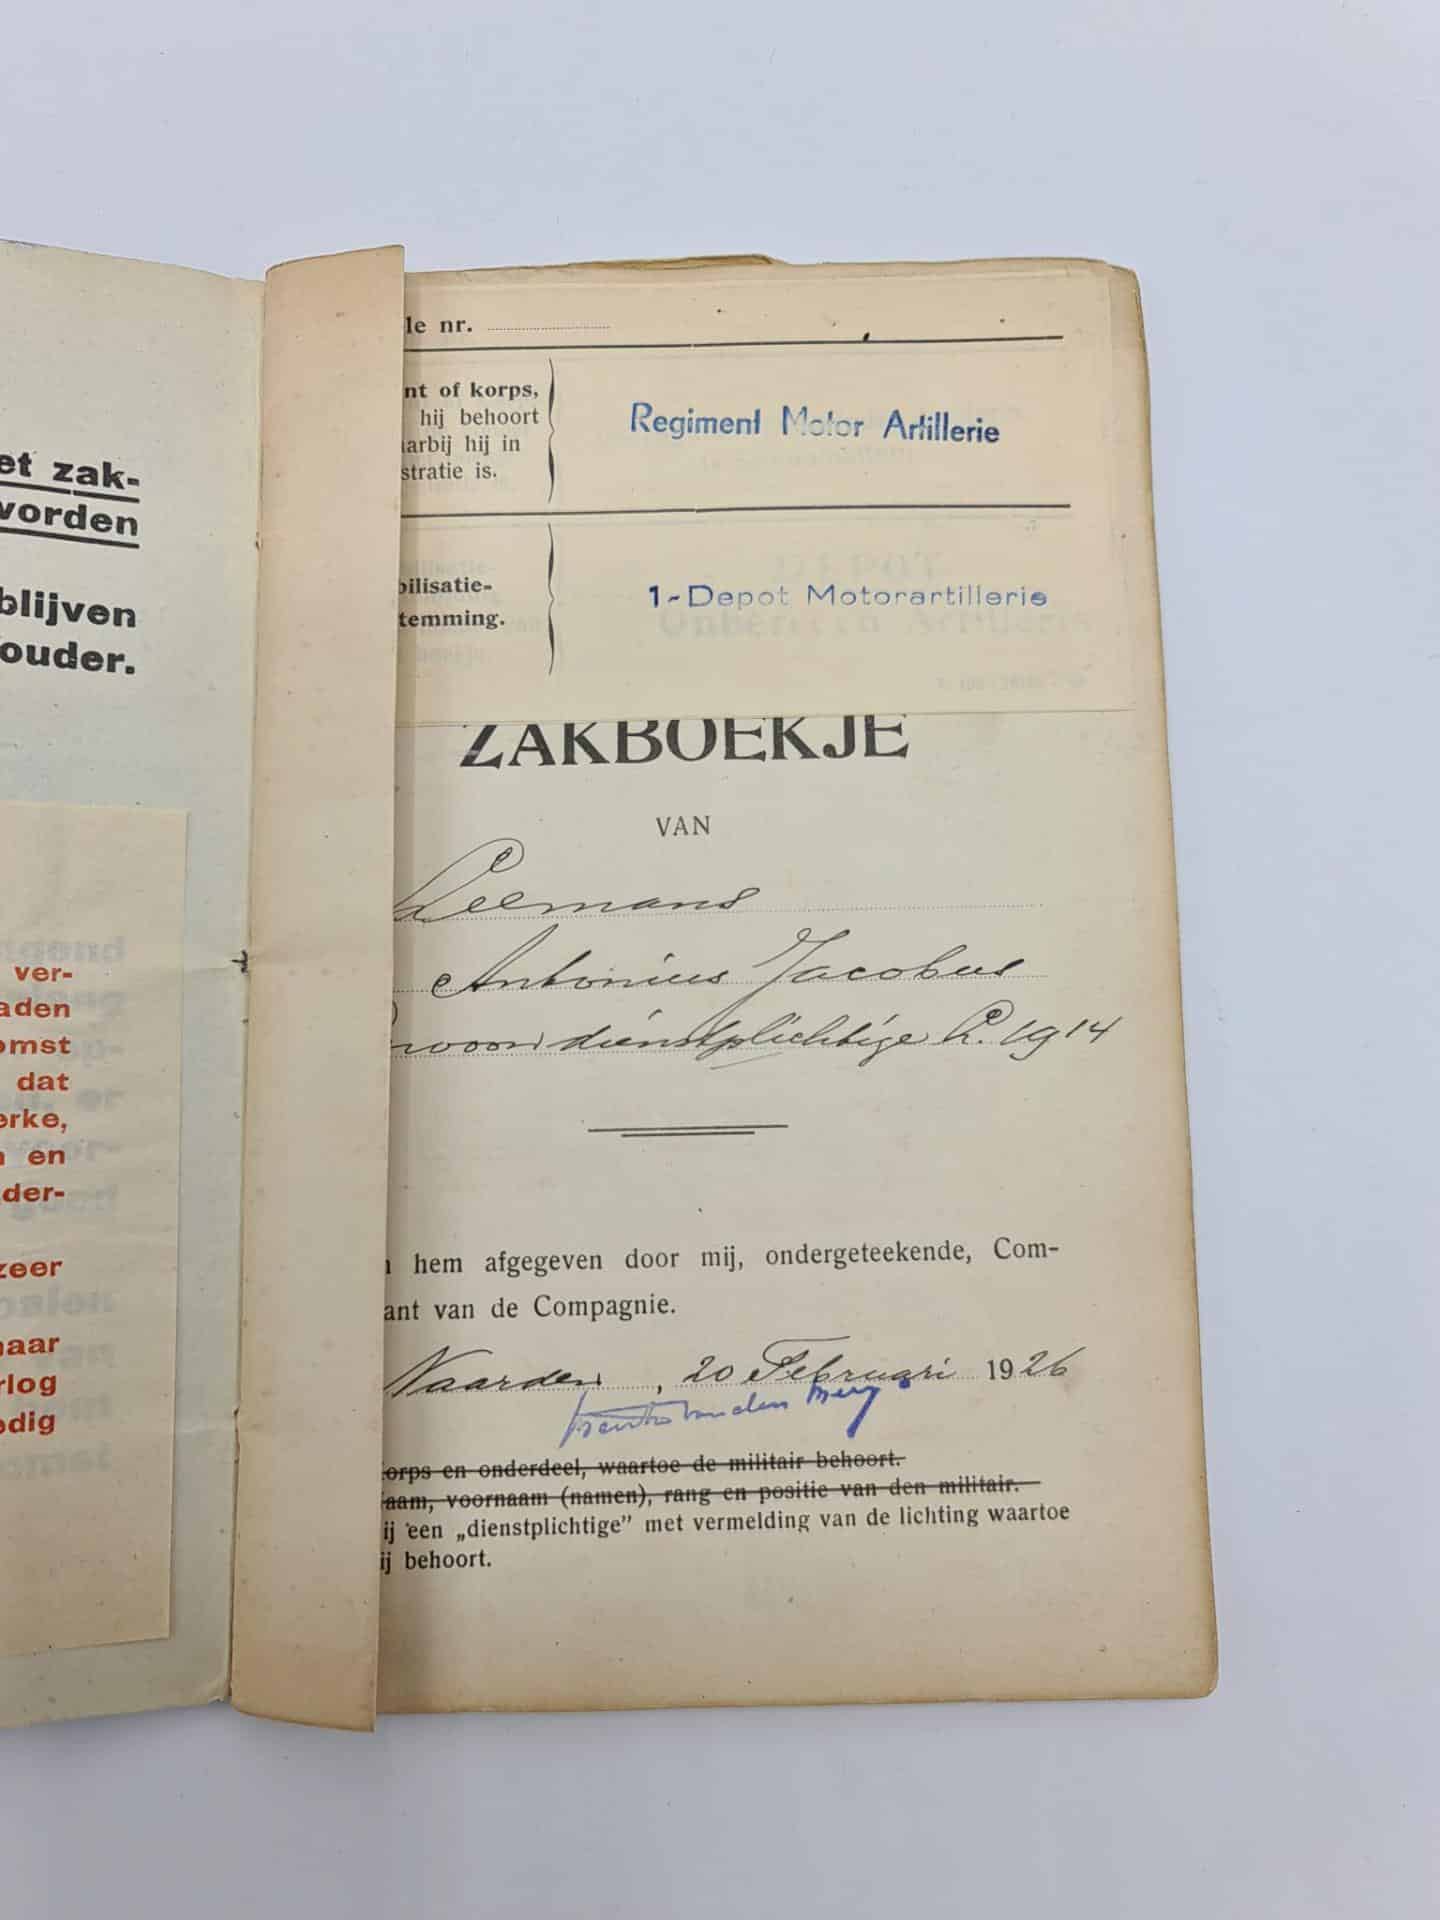 et zak-
worden
blijven
ouder.
ver-
aden
omst
dat
erke,
n en
der-
zeer
naar
rlog
edig
le nr.
nt of korps,
hij behoort
arbij hij in
stratie is.
Regiment Motor Artillerie
bilisatie-
temming.
1-Depot Motorartillerie
ZAKBOEKJE
VAN
Leemans
Antonius Jacobus
woon dienstplichtige L. 1914
n hem afgegeven door mij, ondergeteekende, Com-
ant van de Compagnie.
Naarden, 20 Februari 1926
orps en onderdeel, waartoe de militair behoort.
aam, voornaam (namen), rang en positie van den militair.
ij een „dienstplichtige” met vermelding van de lichting waartoe
ij behoort.